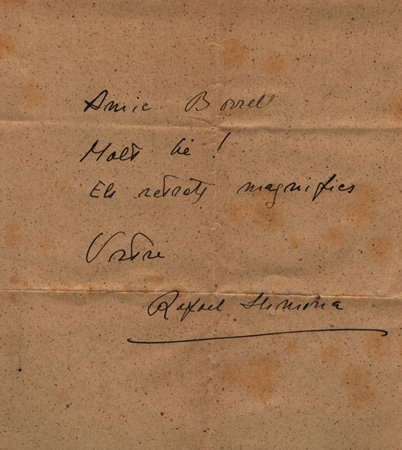 Amic Borrell
Molt bé !
Els retrats magnifics
Vostre
Rafael Llimona